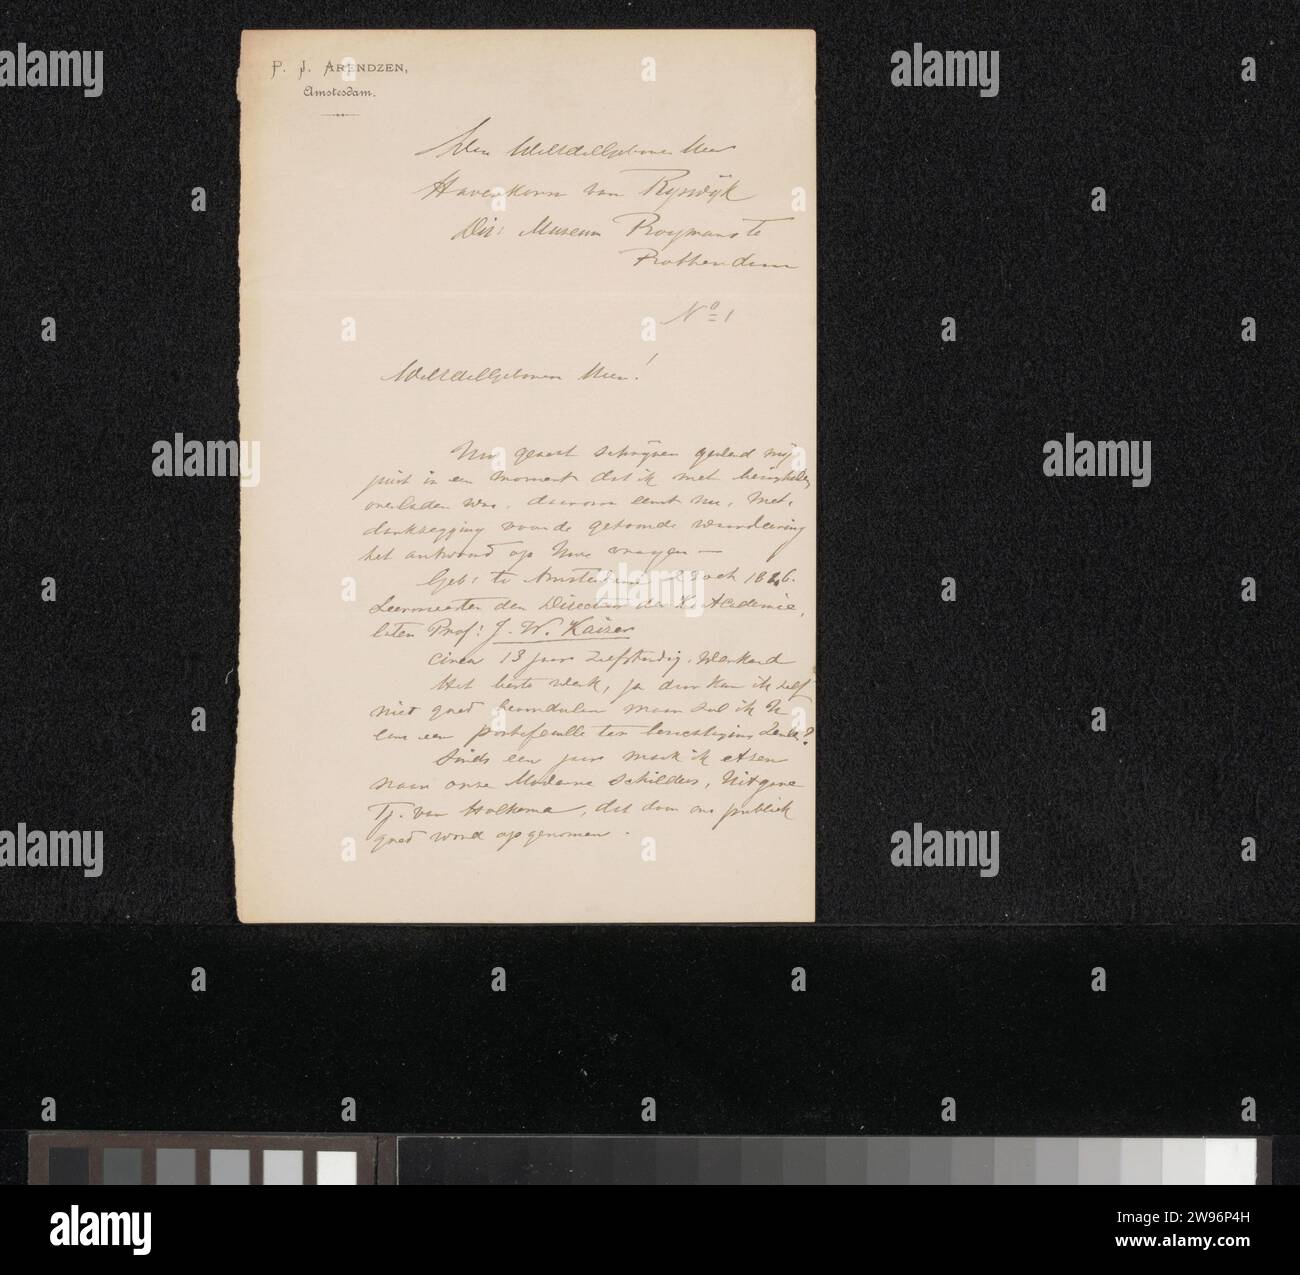 P. J. ARENDZEN,
Amsterdam.
Den WelEdelGeboren Heer
Haverkorn van Rijswijk
Dir: Museum Boymans te
Rotterdam
No 1
WelEdelGeboren Heer!
Uw geacht schrijven gewerd mij
juist in een moment dat ik met bezigheden
overladen was, daarom eerst nu, met
dankzegging voor de getoonde waardeering
het antwoord op Uwe vragen —
Geb: te Amsterdam 29 oct 1846.
Leermeester den Directeur der K. Academie,
later Prof: J. W. Kaiser
circa 13 jaar zelfstandig werkend
Het beste werk, ja daar kan ik zelf
niet goed beoordelen maar zal ik U
eens een portefeuille ter bezichtiging zenden?
Sinds een jaar maak ik etsen
naar onze Moderne Schilders, Uitgave
Tj. van Holkema, dat door ons publiek
goed word opgenomen.
alamy
Image ID: 2W96P4H
www.alamy.com